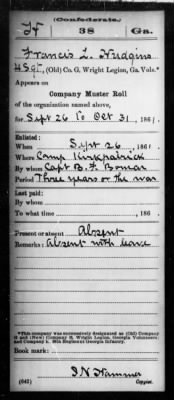 (Confederate.)
H 38 Ga.
Francis L. Hudgins
4 Sgt, (Old) Co. G, Wright Legion, Ga. Vols.*
Appears on
Company Muster Roll
of the organization named above,
for Sept 26 to Oct 31, 1861.
Enlisted:
When Sept 26, 1861.
Where Camp Kirkpatrick
By whom Capt B. F. Bomar
Period Three years or the war
Last paid:
By whom
To what time , 186 .
Present or absent Absent
Remarks: Absent with leave
*This company was successively designated as (Old) Company
G and (New) Company H, Wright Legion, Georgia Volunteers
and Company 38th Regiment Georgia Infantry.
Book mark:
(642) J N Hammer
Copyist.